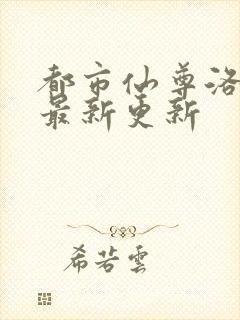 都市仙尊洛
最新更新
希若雲